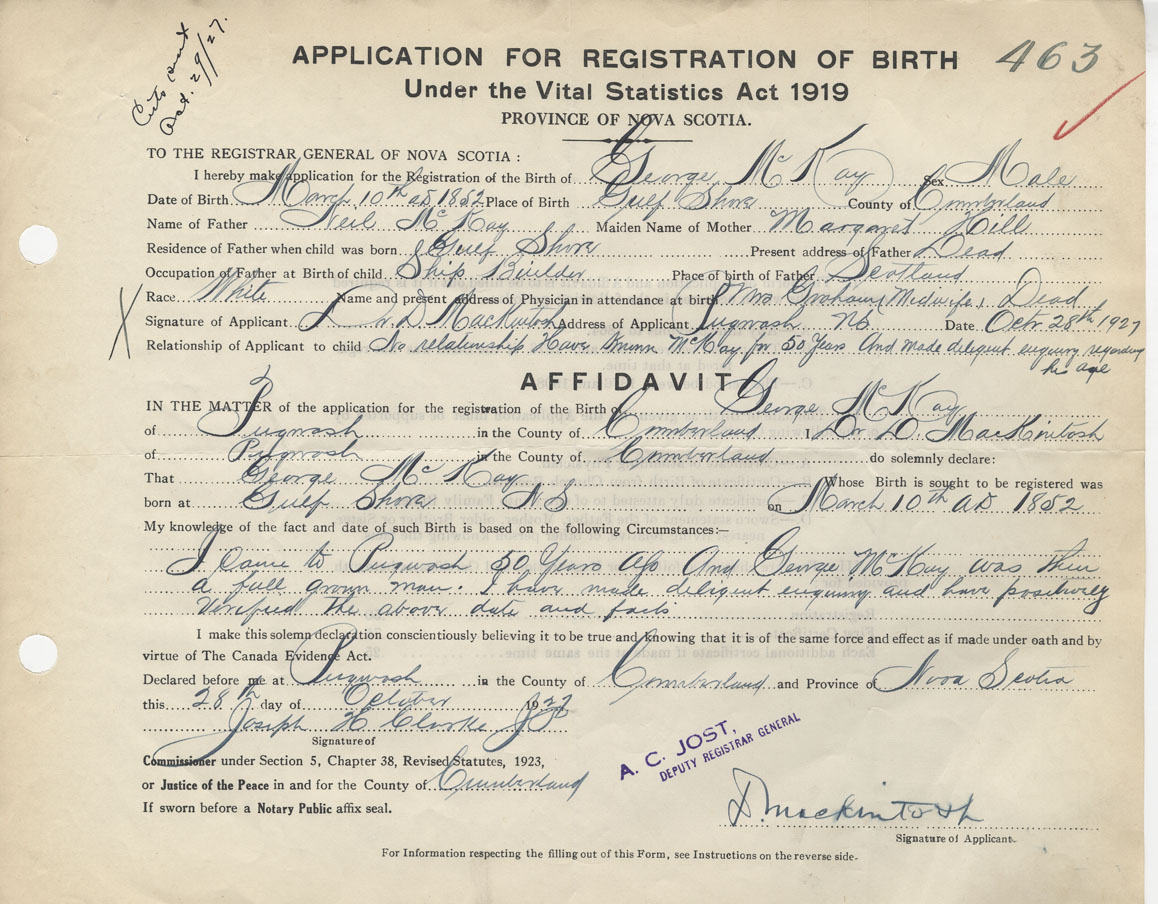 463
Oct. 29/27.
APPLICATION FOR REGISTRATION OF BIRTH
Under the Vital Statistics Act 1919
PROVINCE OF NOVA SCOTIA.
TO THE REGISTRAR GENERAL OF NOVA SCOTIA :
I hereby make application for the Registration of the Birth of George McKay Sex Male
Date of Birth March 10th AD 1852 Place of Birth Gulf Shore County of Cumberland
Name of Father Neil McKay Maiden Name of Mother Margaret Hill
Residence of Father when child was born Gulf Shore Present address of Father Dead
Occupation of Father at Birth of child Ship Builder Place of birth of Father Scotland
Race White Name and present address of Physician in attendance at birth Mrs Graham Midwife, Dead
Signature of Applicant Dr D MacKintosh Address of Applicant Pugwash NS Date Octr 28th 1927
Relationship of Applicant to child No relationship Have known McKay for 50 Years And made diligent enquiry regarding
his age
AFFIDAVIT
IN THE MATTER of the application for the registration of the Birth of George McKay
of Pugwash in the County of Cumberland I Dr D. MacKintosh
of Pugwash in the County of Cumberland do solemnly declare:
That George McKay Whose Birth is sought to be registered was
born at Gulf Shore N S on March 10th AD 1852
My knowledge of the fact and date of such Birth is based on the following Circumstances:—
I came to Pugwash 50 Years Ago And George McKay was then
a full grown man. I have made diligent enquiry and have positively
Verified the above date and facts
I make this solemn declaration conscientiously believing it to be true and knowing that it is of the same force and effect as if made under oath and by
virtue of The Canada Evidence Act.
Declared before me at Pugwash in the County of Cumberland and Province of Nova Scotia
this 28th day of October 1927
Joseph H Clarke JP
Signature of
Commissioner under Section 5, Chapter 38, Revised Statutes, 1923,
or Justice of the Peace in and for the County of Cumberland
If sworn before a Notary Public affix seal.
A. C. JOST,
DEPUTY REGISTRAR GENERAL
D. Mackintosh
Signature of Applicant.
For Information respecting the filling out of this Form, see Instructions on the reverse side.